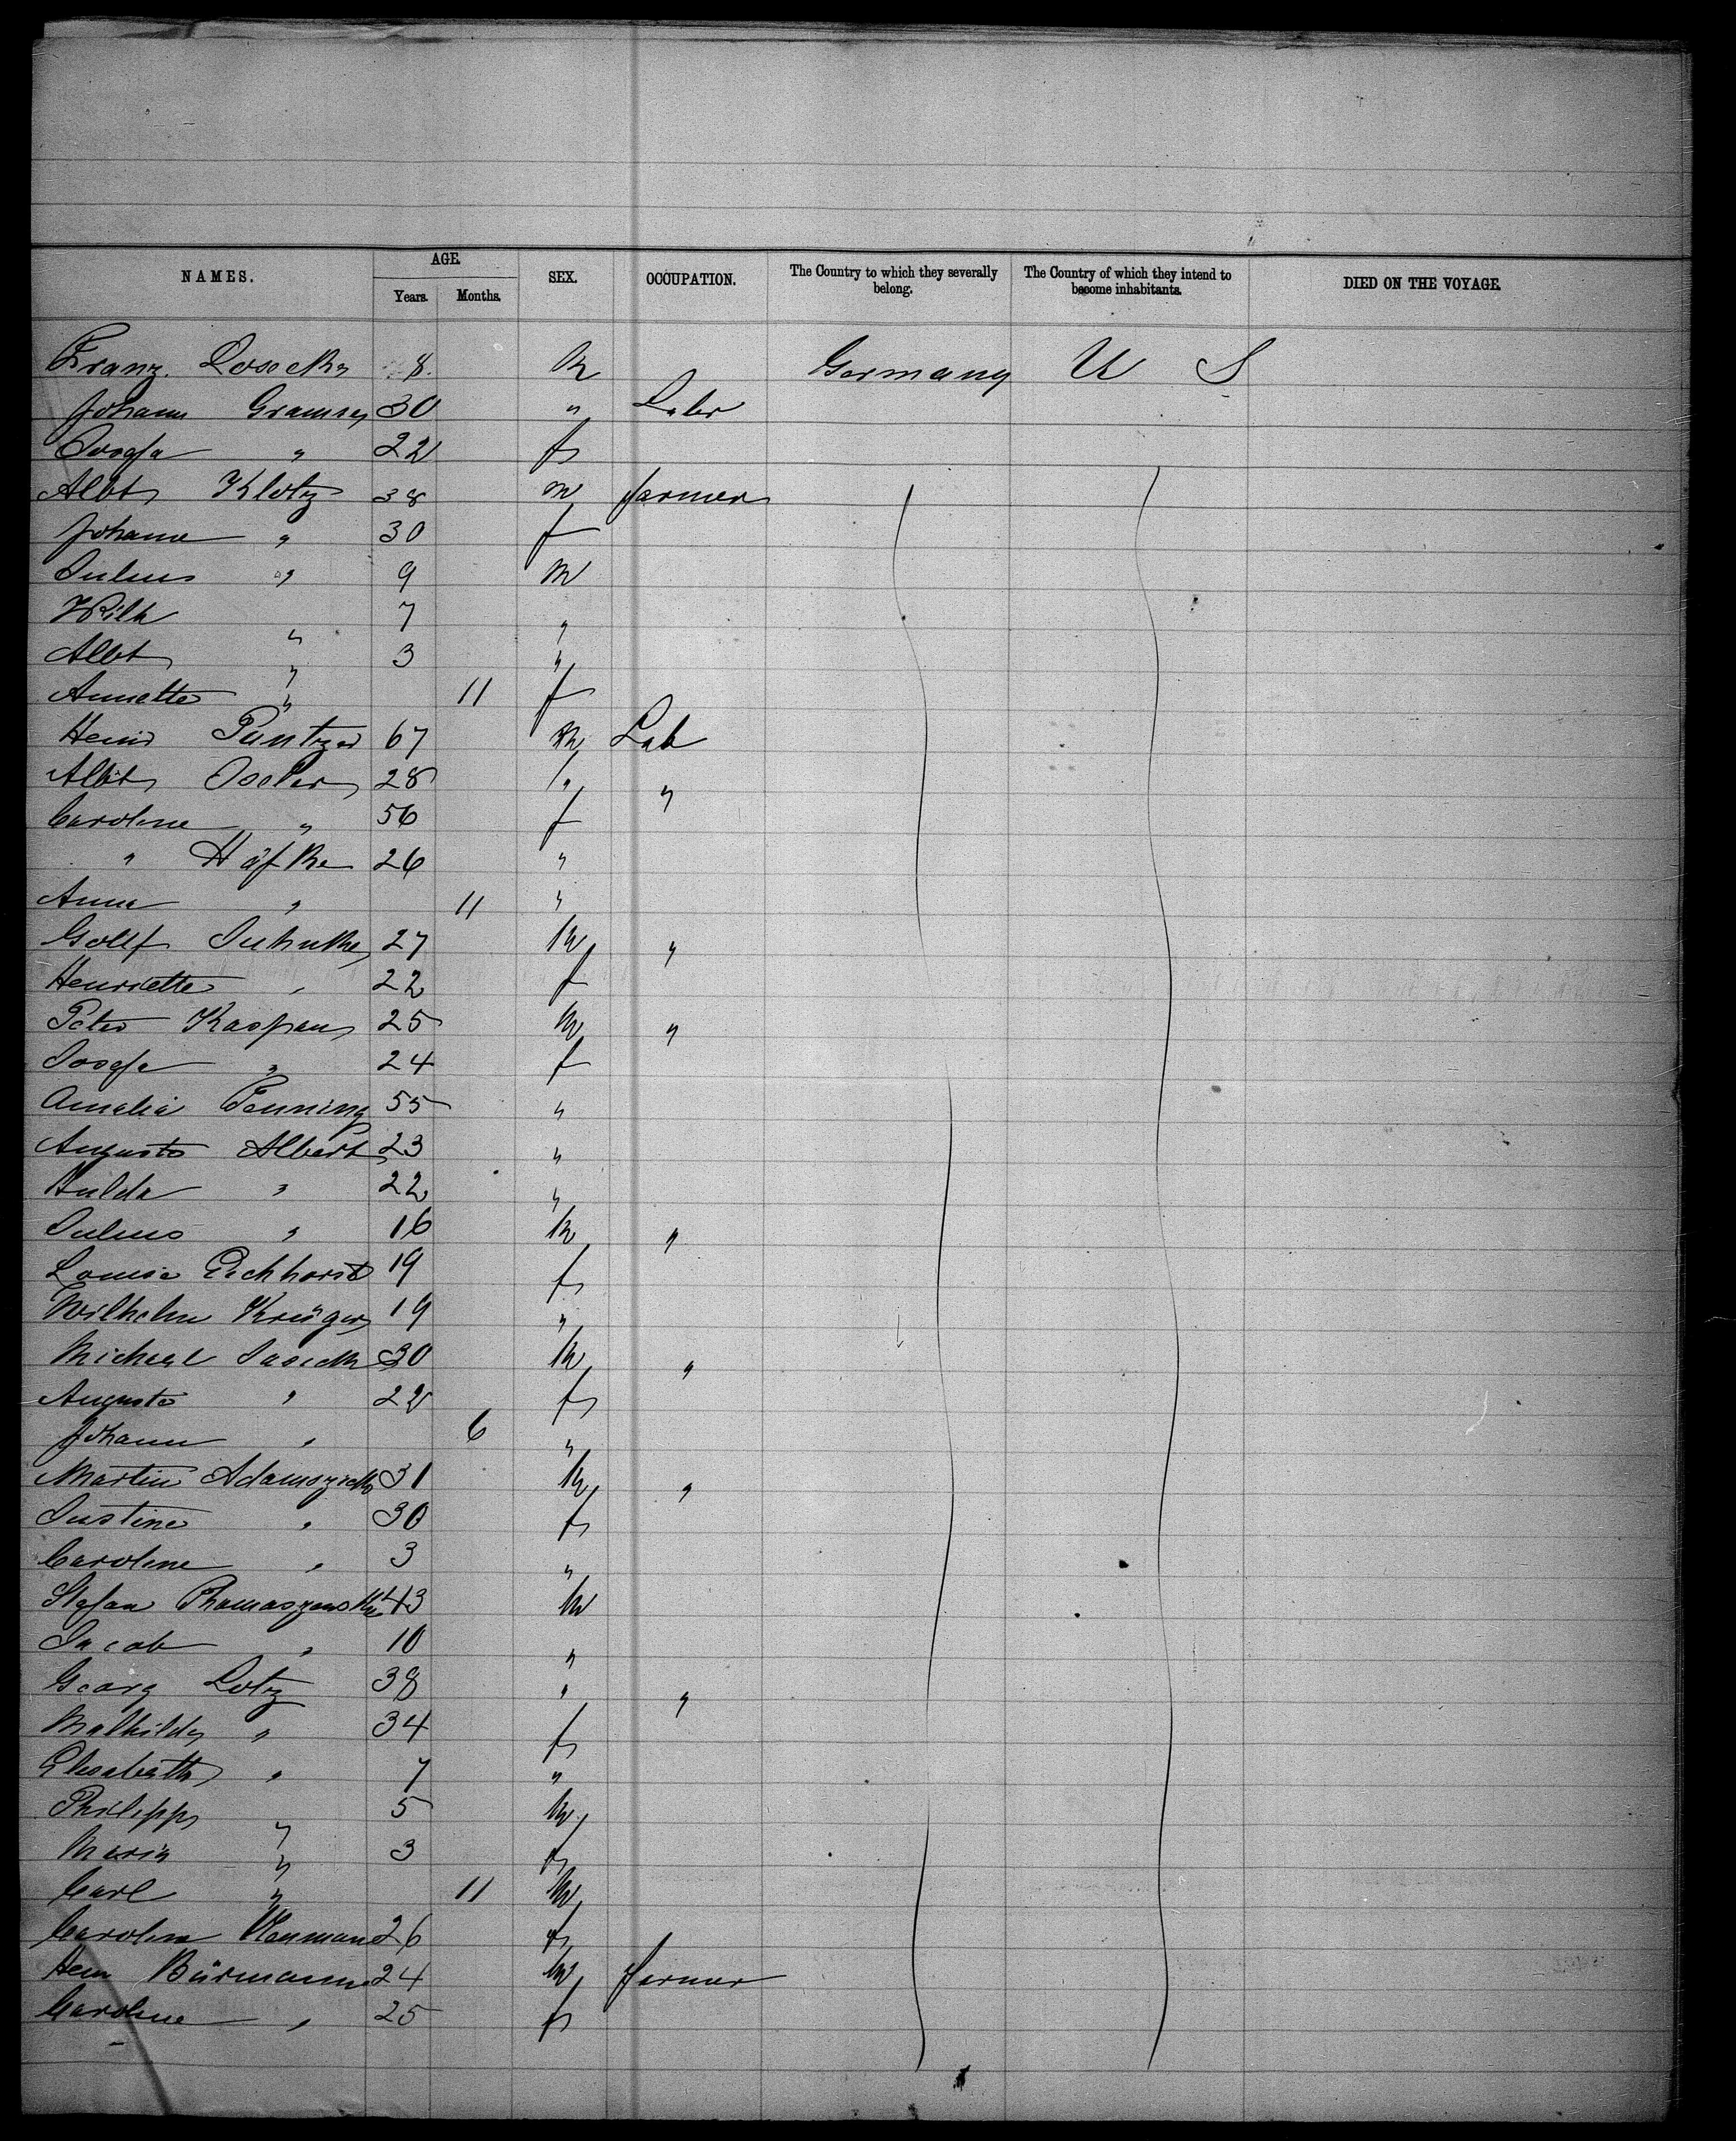 NAMES. AGE. Years. Months. SEX. OCCUPATION. The Country to which they severally belong. The Country of which they intend to become inhabitants. DIED ON THE VOYAGE.
Franz 8 M Germany U S
Johann 30 " Labr
Josefa " 22 f
Albt Klotz 38 m farmer
Johane " 30 f
Julius " 9 M
Wilh " 7 "
Albt " 3 "
Annette " 11 f
Heinr 67 M Lab
Albt 28 " "
Caroline " 56 f
" Häfke 26 "
Anna " 11 "
Gottf 27 M "
Henriette " 22 f
Peter Kaspar 25 M "
Josefa " 24 f
Amalia 55 "
Auguste Albert 23 "
Hulda " 22 "
Julius " 16 M "
Louise Eichhorst 19 f
Wilhelm Krüger 19 "
Michael 30 M "
Auguste " 22 f
Johann " 6 "
Martin Adamszick 31 M "
Justine " 30 f
Caroline " 3 "
Stefan 43 M
Jacob " 10 "
Georg Lotz 38 " "
Mathilde " 34 f
Elisabeth " 7 "
Philipp " 5 M
Maria " 3 f
Carl " 11 M
Caroline 26 f
Hein Bürmann 24 M farmer
Caroline " 25 f